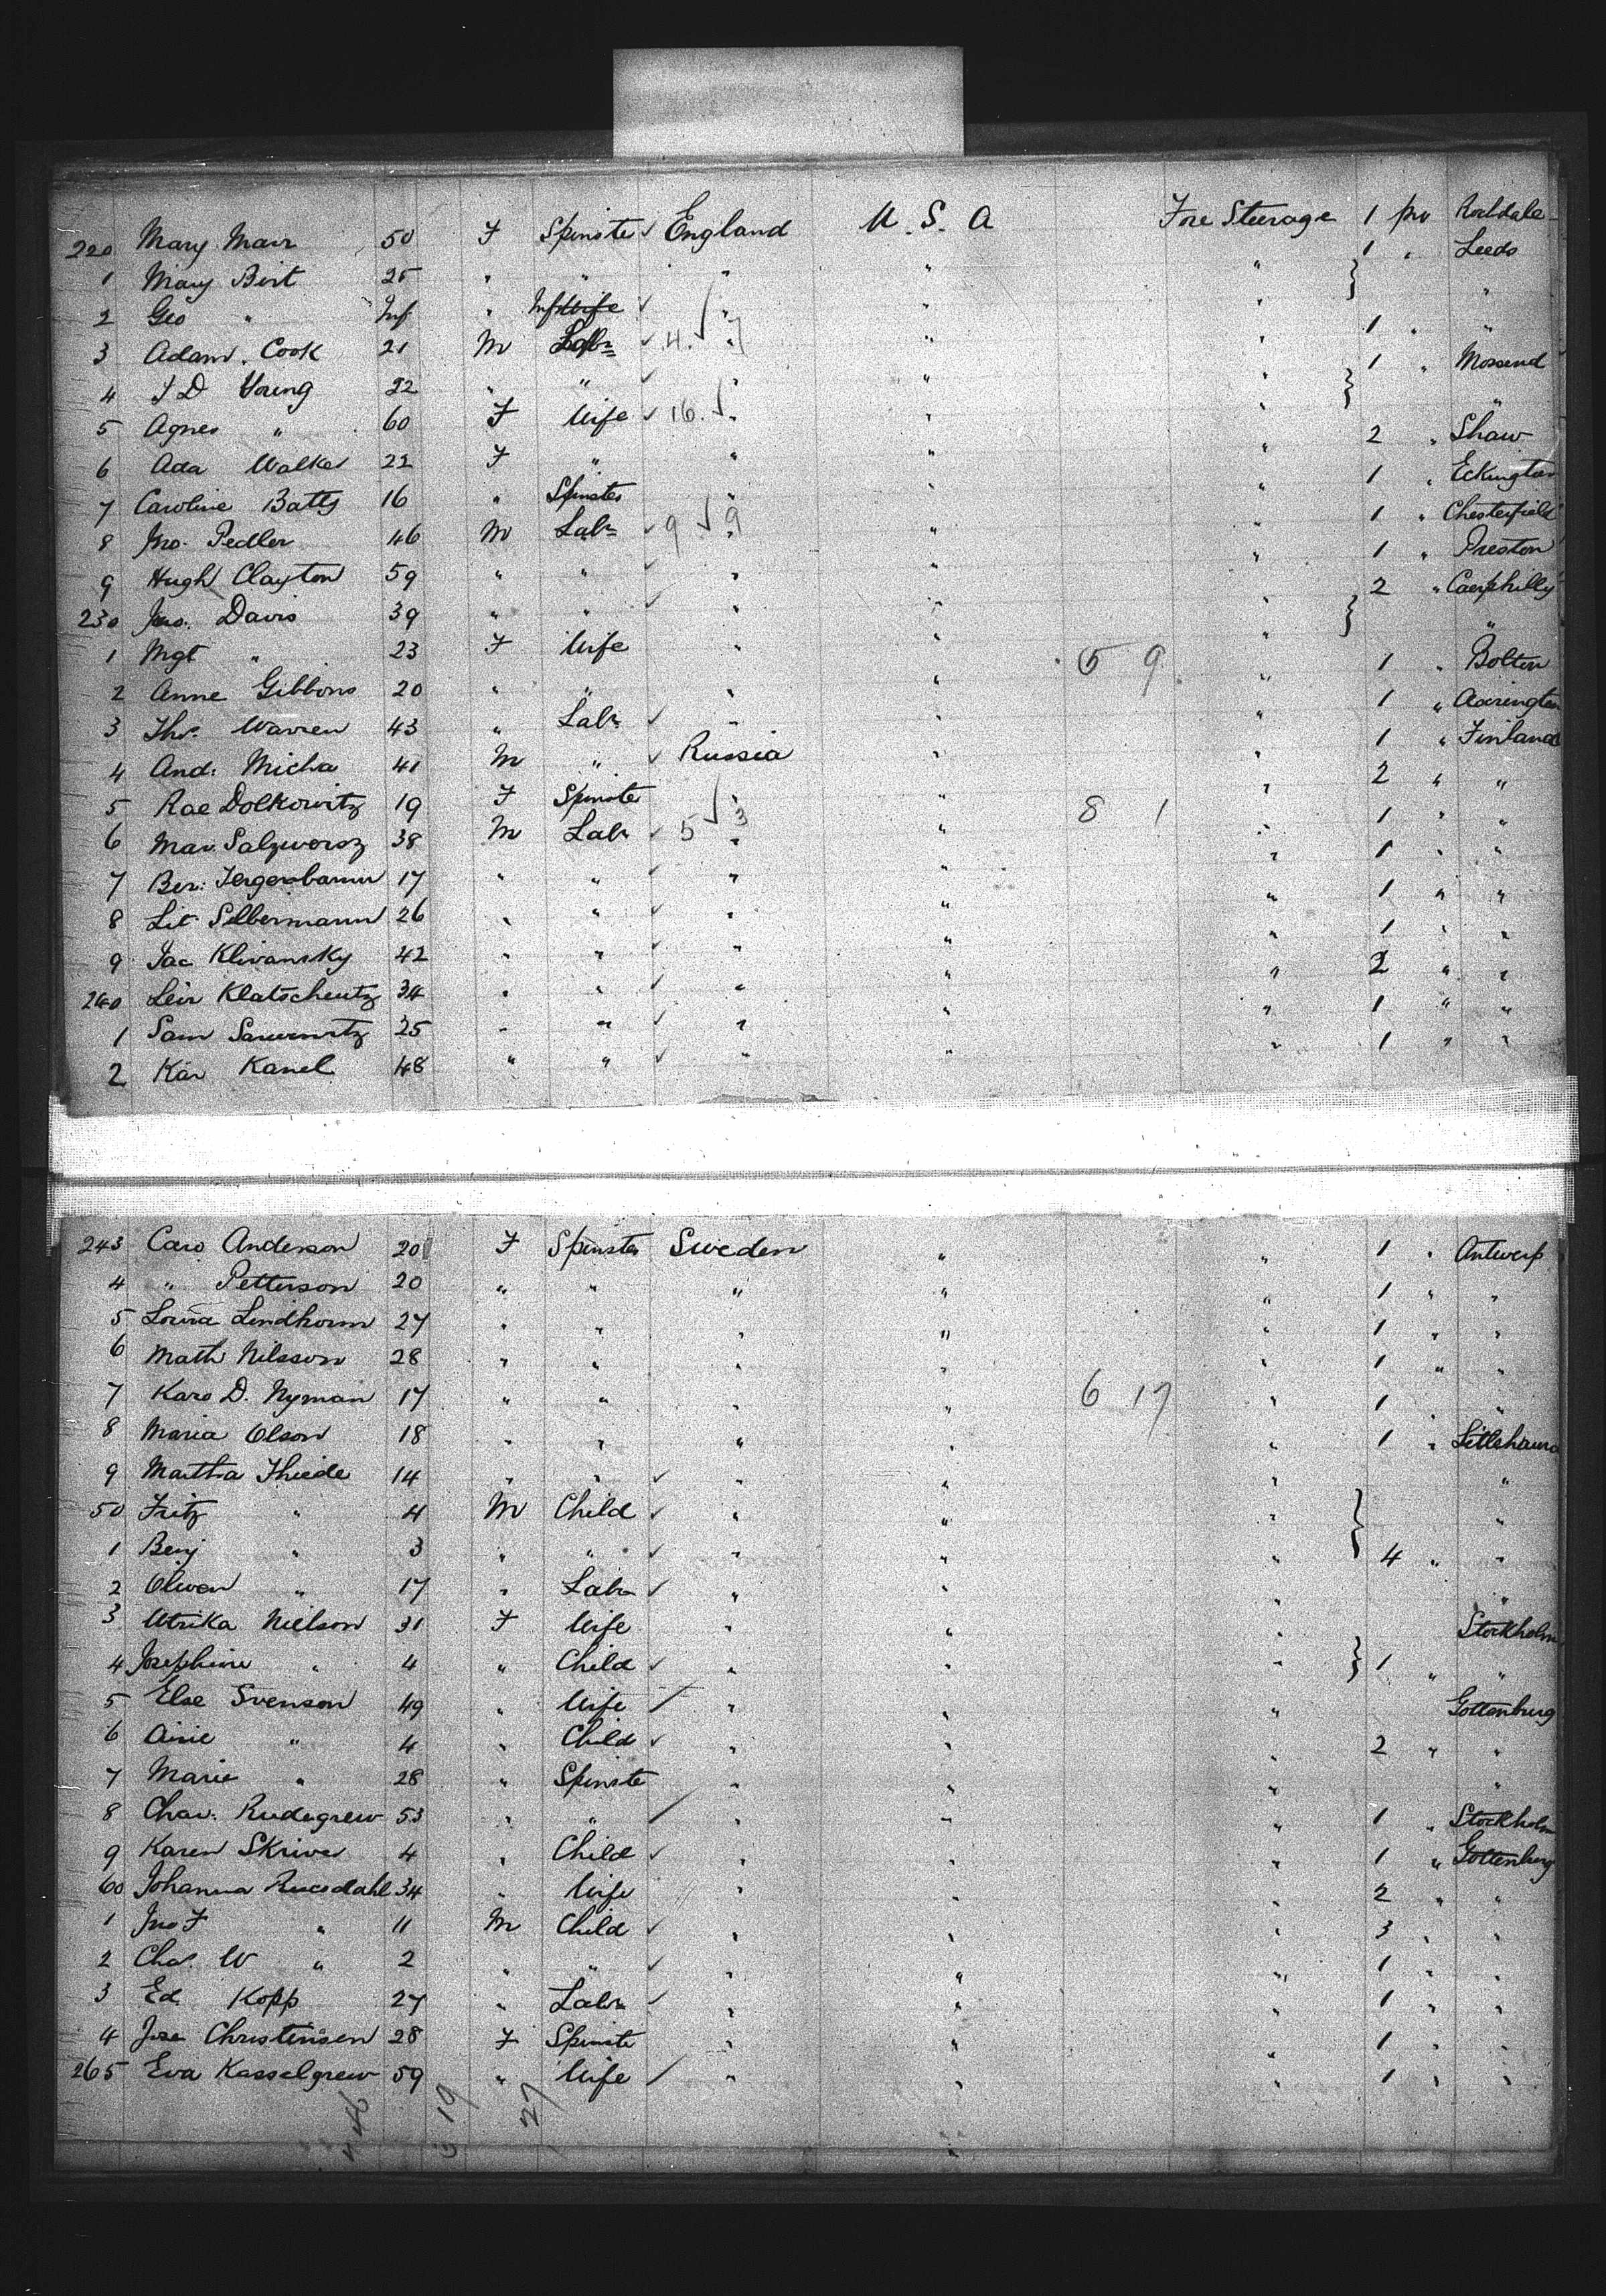 220 Mary Marr 50 F Spinster ✓ England U.S.A Fore Steerage 1 pro Rochdale
1 Mary Birt 25 " " " " " 1 " Leeds
2 Geo " Inf " Inf Wife ✓ " " " "
3 Adam. Cook 21 M Labr ✓ 4. " " " 1 " "
4 J D Young 22 " " ✓ " " " 1 " Mossend
5 Agnes " 60 F Wife ✓ 16. " " " "
6 Ada Walker 22 F " " " " 2 " Shaw
7 Caroline Batty 16 " Spinster " " " 1 " Eckington
8 Jno. Pedler 46 M Labr ✓ 9 9 " " " 1 " Chesterfield
9 Hugh Clayton 59 " " ✓ " " " 1 " Preston
230 Jno. Davis 39 " " ✓ " " " 2 " Caerphilly
1 Mgt " 23 F Wife " " 5 9 " "
2 Anne Gibbons 20 " " " " " 1 " Bolton
3 Thos. Warren 43 " Labr ✓ " " " 1 " Accrington
4 And: Micha 41 M " ✓ Russia " " 1 " Finland
5 Rae Dolkowitz 19 F Spinster " " 8 1 " 2 " "
6 38 M Labr ✓ 5 3 " " " 1 " "
7 Ber: 17 " " ✓ " " " 1 " "
8 Silbermann 26 " " ✓ " " " 1 " "
9 Jac Klivansky 42 " " ✓ " " " 1 " "
240 Leir Klatscheutz 34 " " " " " 2 " "
1 Sam 25 " " ✓ " " " 1 " "
2 Kar Kanel 48 " " ✓ " " " 1 " "
243 Caro Anderson 20 F Spinster Sweden " " 1 " Antwerp
4 " Petterson 20 " " " " " 1 " "
5 Lovisa Lindhorm 27 " " " " " 1 " "
6 Math Nilsson 28 " " " " " 1 " "
7 Karo D. Nyman 17 " " " " 6 17 " 1 " "
8 Maria Olson 18 " " " " " 1 "
9 Martha Thiede 14 " " ✓ " " " "
50 Fritz " 4 M Child ✓ " " " "
1 Benj " 3 " " ✓ " " " 4 " "
2 " 17 " Labr ✓ " " "
3 Ulrika Nielson 31 F Wife " " " Stockholm
4 Josephine " 4 " Child ✓ " " " 1 " "
5 Else Svenson 49 " Wife / " " " Gottenburg
6 " 4 " Child ✓ " " " 2 " "
7 Marie " 28 " Spinster " " " "
8 Char. Rudegrew 53 " " / " " " 1 " Stockholm
9 Karen Skriver 4 " Child ✓ " " " 1 " Gottenburg
60 Johanna 34 " Wife " " " 2 " "
1 Jno F " 11 M Child ✓ " " " 3 " "
2 Chas. W " 2 " " ✓ " " " 1 " "
3 Ed. Kopp 27 " Labr ✓ " " " 1 " "
4 Christensen 28 F Spinster " " " 1 " "
265 Eva Kasselgrew 59 " Wife / " " " 1 " "
19 27